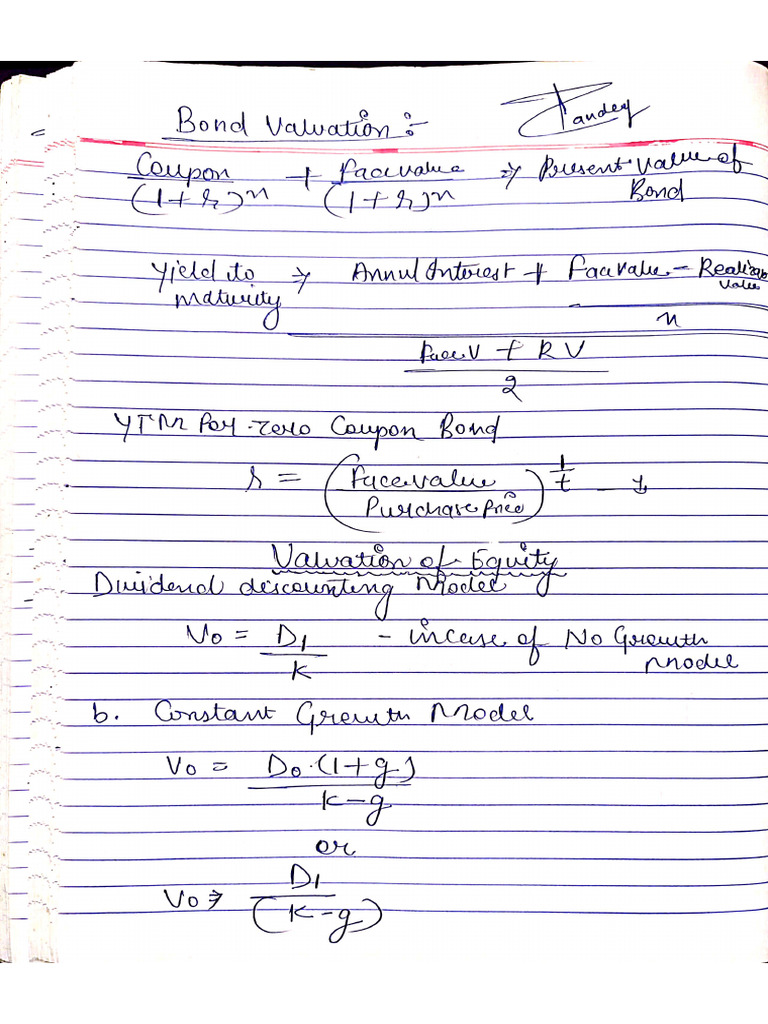 Bond Valuation :-
Pandey
Coupon/(1+r)^n + Facevalue/(1+r)^n => Present value of Bond
Yield to maturity => Annul Interest + Facevalue - Realizab value
n
Face V + RV
2
YTM For Zero Coupon Bond
r = (Facevalue/Purchase price)^1/t - 1
Valuation of Equity
Dividend discounting Model
V0 = D1/K - incase of No Growth Model
b. Constant Growth Model
V0 = D0.(1+g)/K-g
or
V0 => D1/(K-g)